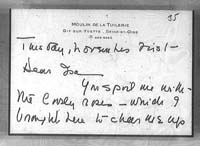 35
MOULIN DE LA TUILERIE
GIF SUR YVETTE, SEINE-ET-OISE
Tuesday, November 21st –
Dear
You spoil me with
the lovely roses – which I
brought here to cheer me up